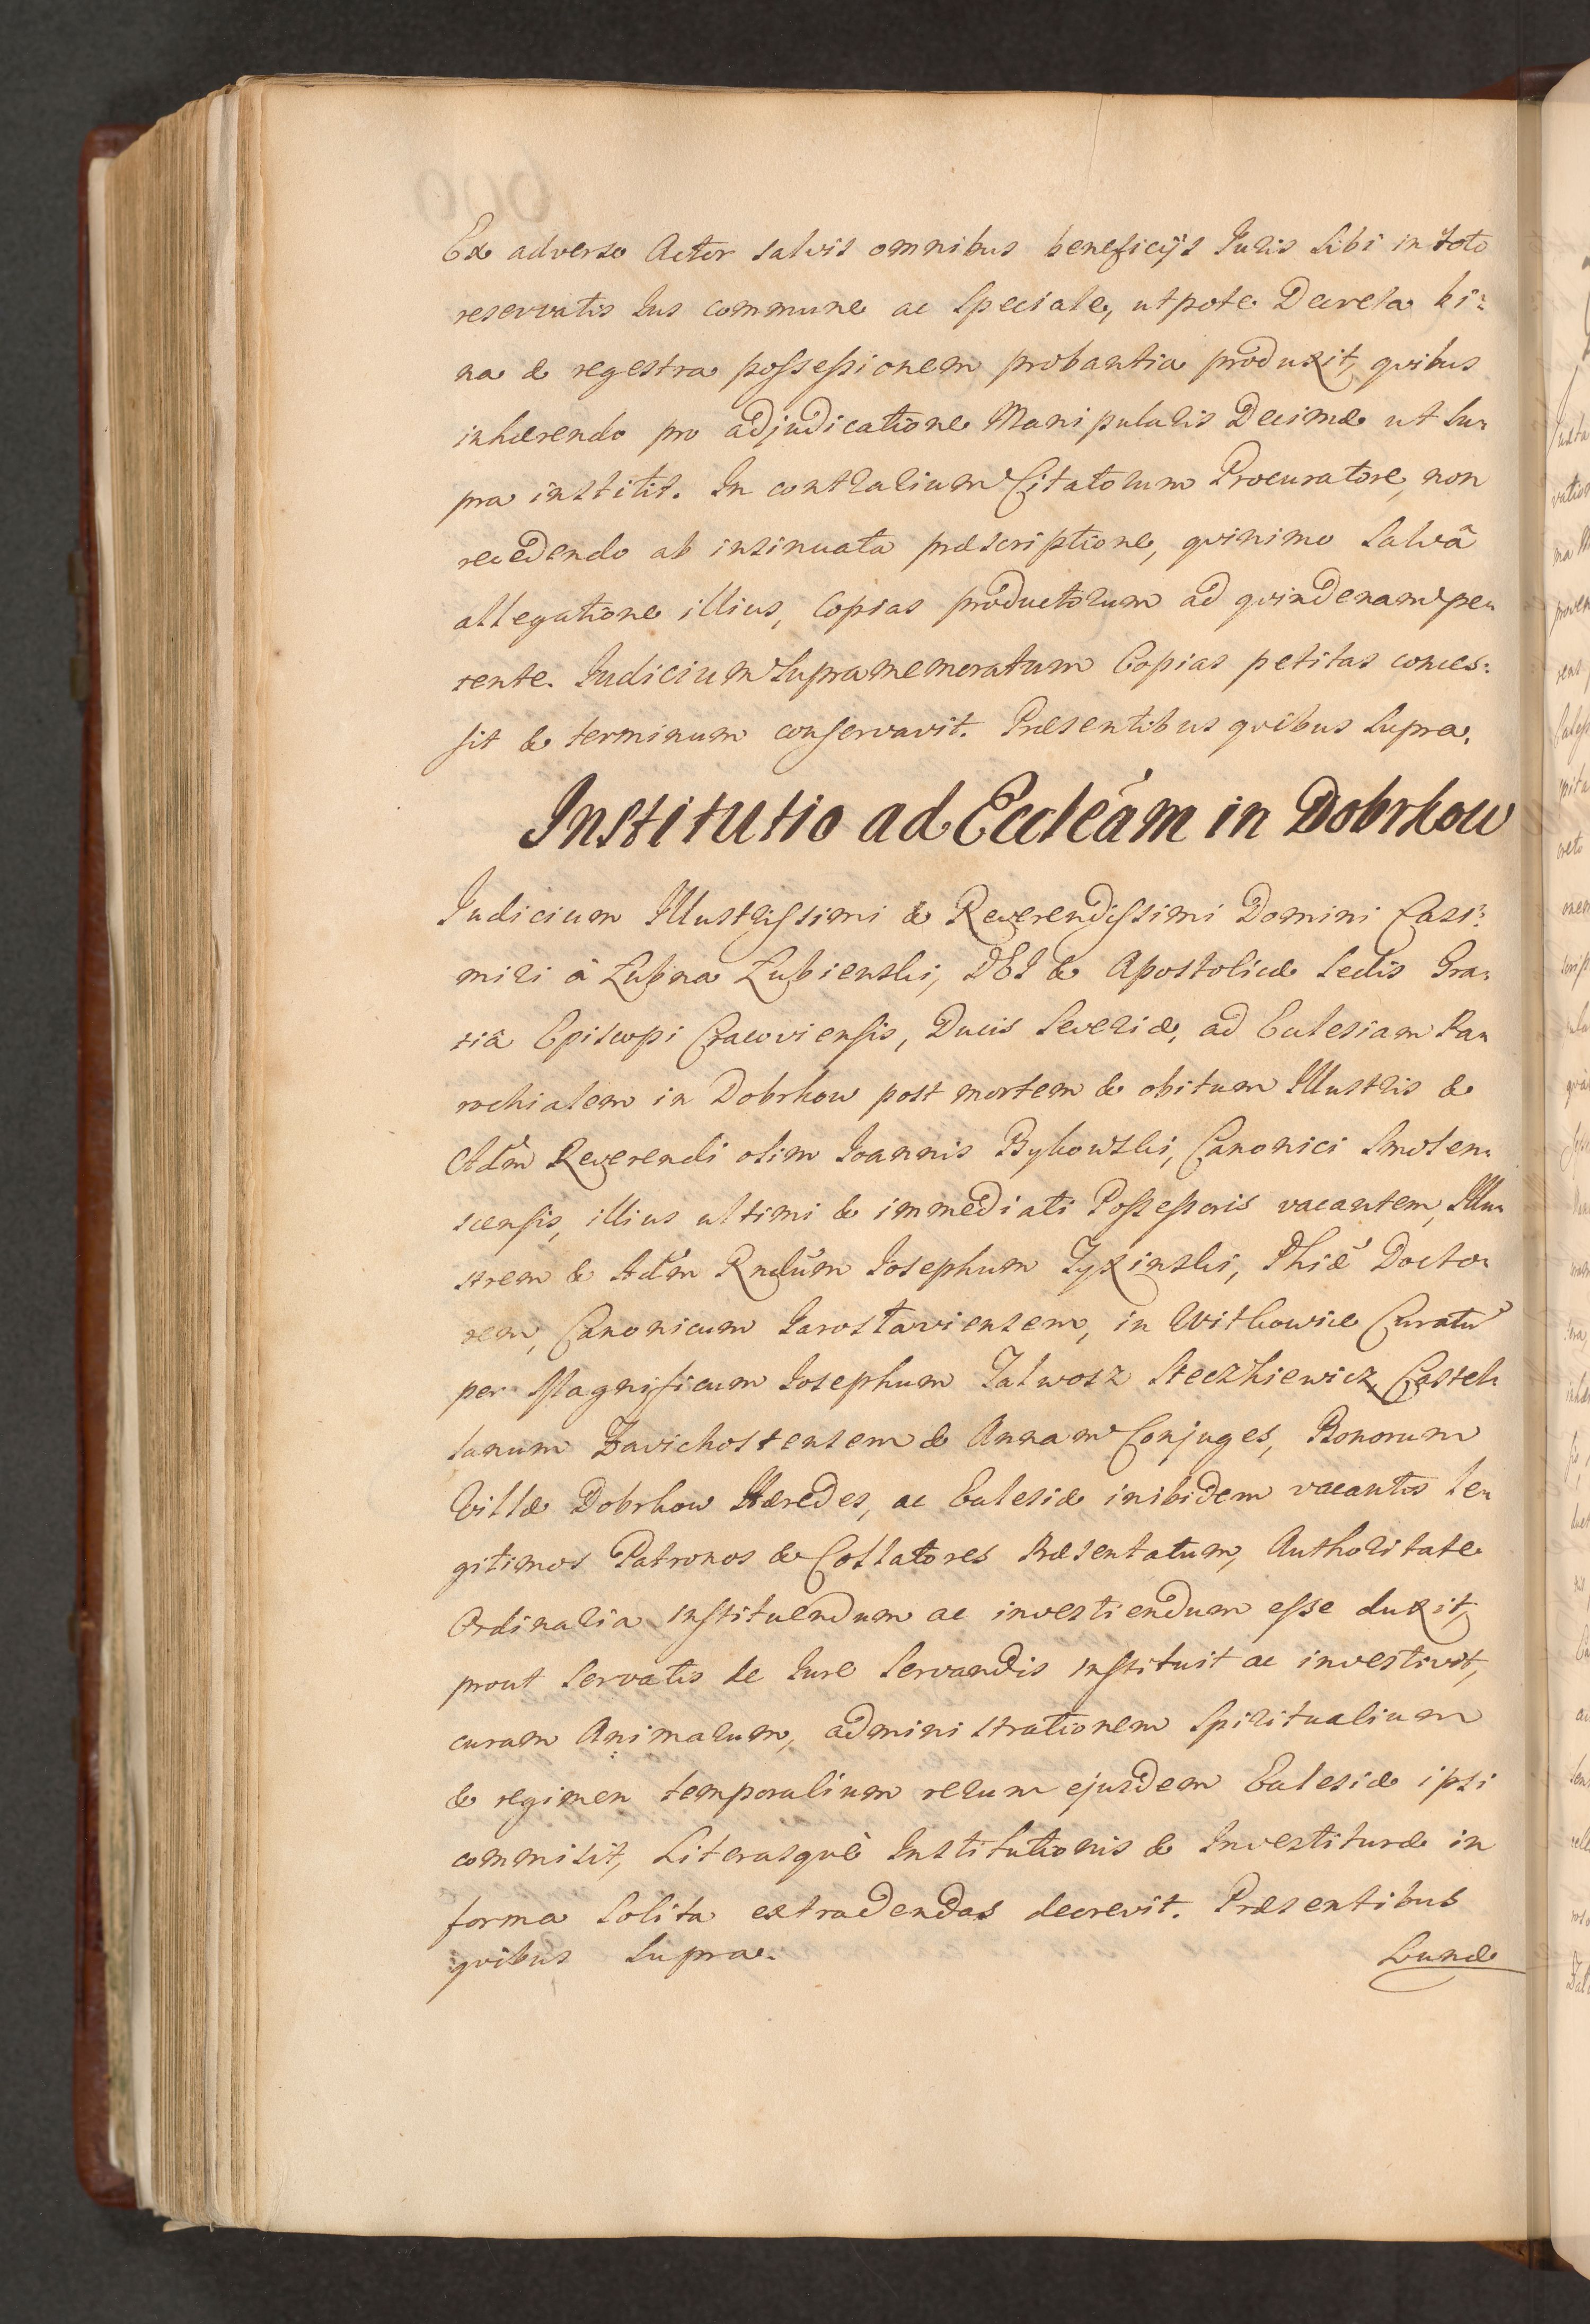 Ex adverso Actor salvis omnibus beneficijs Juris sibi in toto
reservatis Jus commune ac speciale, utpote Decreta bi:
na & regestra possessionem probantia produxit, quibus
inhærendo pro adjudicatione Manipularis Decimæ ut su:
pra institit. In contrarium Citatorum Procuratore, non
recedendo ab insinuata præscriptione, quinimo salvâ
allegatione illius, Copias productorum ad quindenam pe:
tente. Judicium supramemoratum Copias petitas conces:
sit & terminum conservavit. Præsentibus quibus supra.
Institutio ad Eccleám in Dobrkow
Judicium Illustrissimi & Reverendissimi Domini Casi:
miri â Łubna Łubienski, DEI & Apostolicæ Sedis Gra:
tiâ Episcopi Cracoviensis, Ducis Severiæ, ad Ecclesiam Pa:
rochialem in Dobrkow post mortem & obitum Illustris &
Adm Reverendi olim Joannis Bykowski, Canonici Smolen:
scensis, illius ultimi & immediati Possessoris vacantem, Illu:
strem & Adm Rndum Josephum Zyzinski, Phiæ Docto:
rem, Canonicum Jarosłaviensem, in Witkowice Curatũ
per Magnificum Josephum Jalwosz Steczkiewicz, Castel:
lanum Zavichostensem & Annam Conjuges, Bonorum
Villæ Dobrkow Hæredes, ac Ecclesiæ inibidem vacantis le:
gitimos Patronos & Collatores Præsentatum, Authoritate
Ordinaria instituendum ac investiendum esse duxit,
prout servatis de Jure servandis instituit ac investivit,
curam Animarum, administrationem Spiritualium
& regimen temporalium rerum ejusdem Ecclesiæ ipsi
commisit, Literasquè Institutionis & Investituræ in
forma solita extradendas decrevit. Præsentibus
quibus supra.
Lunæ